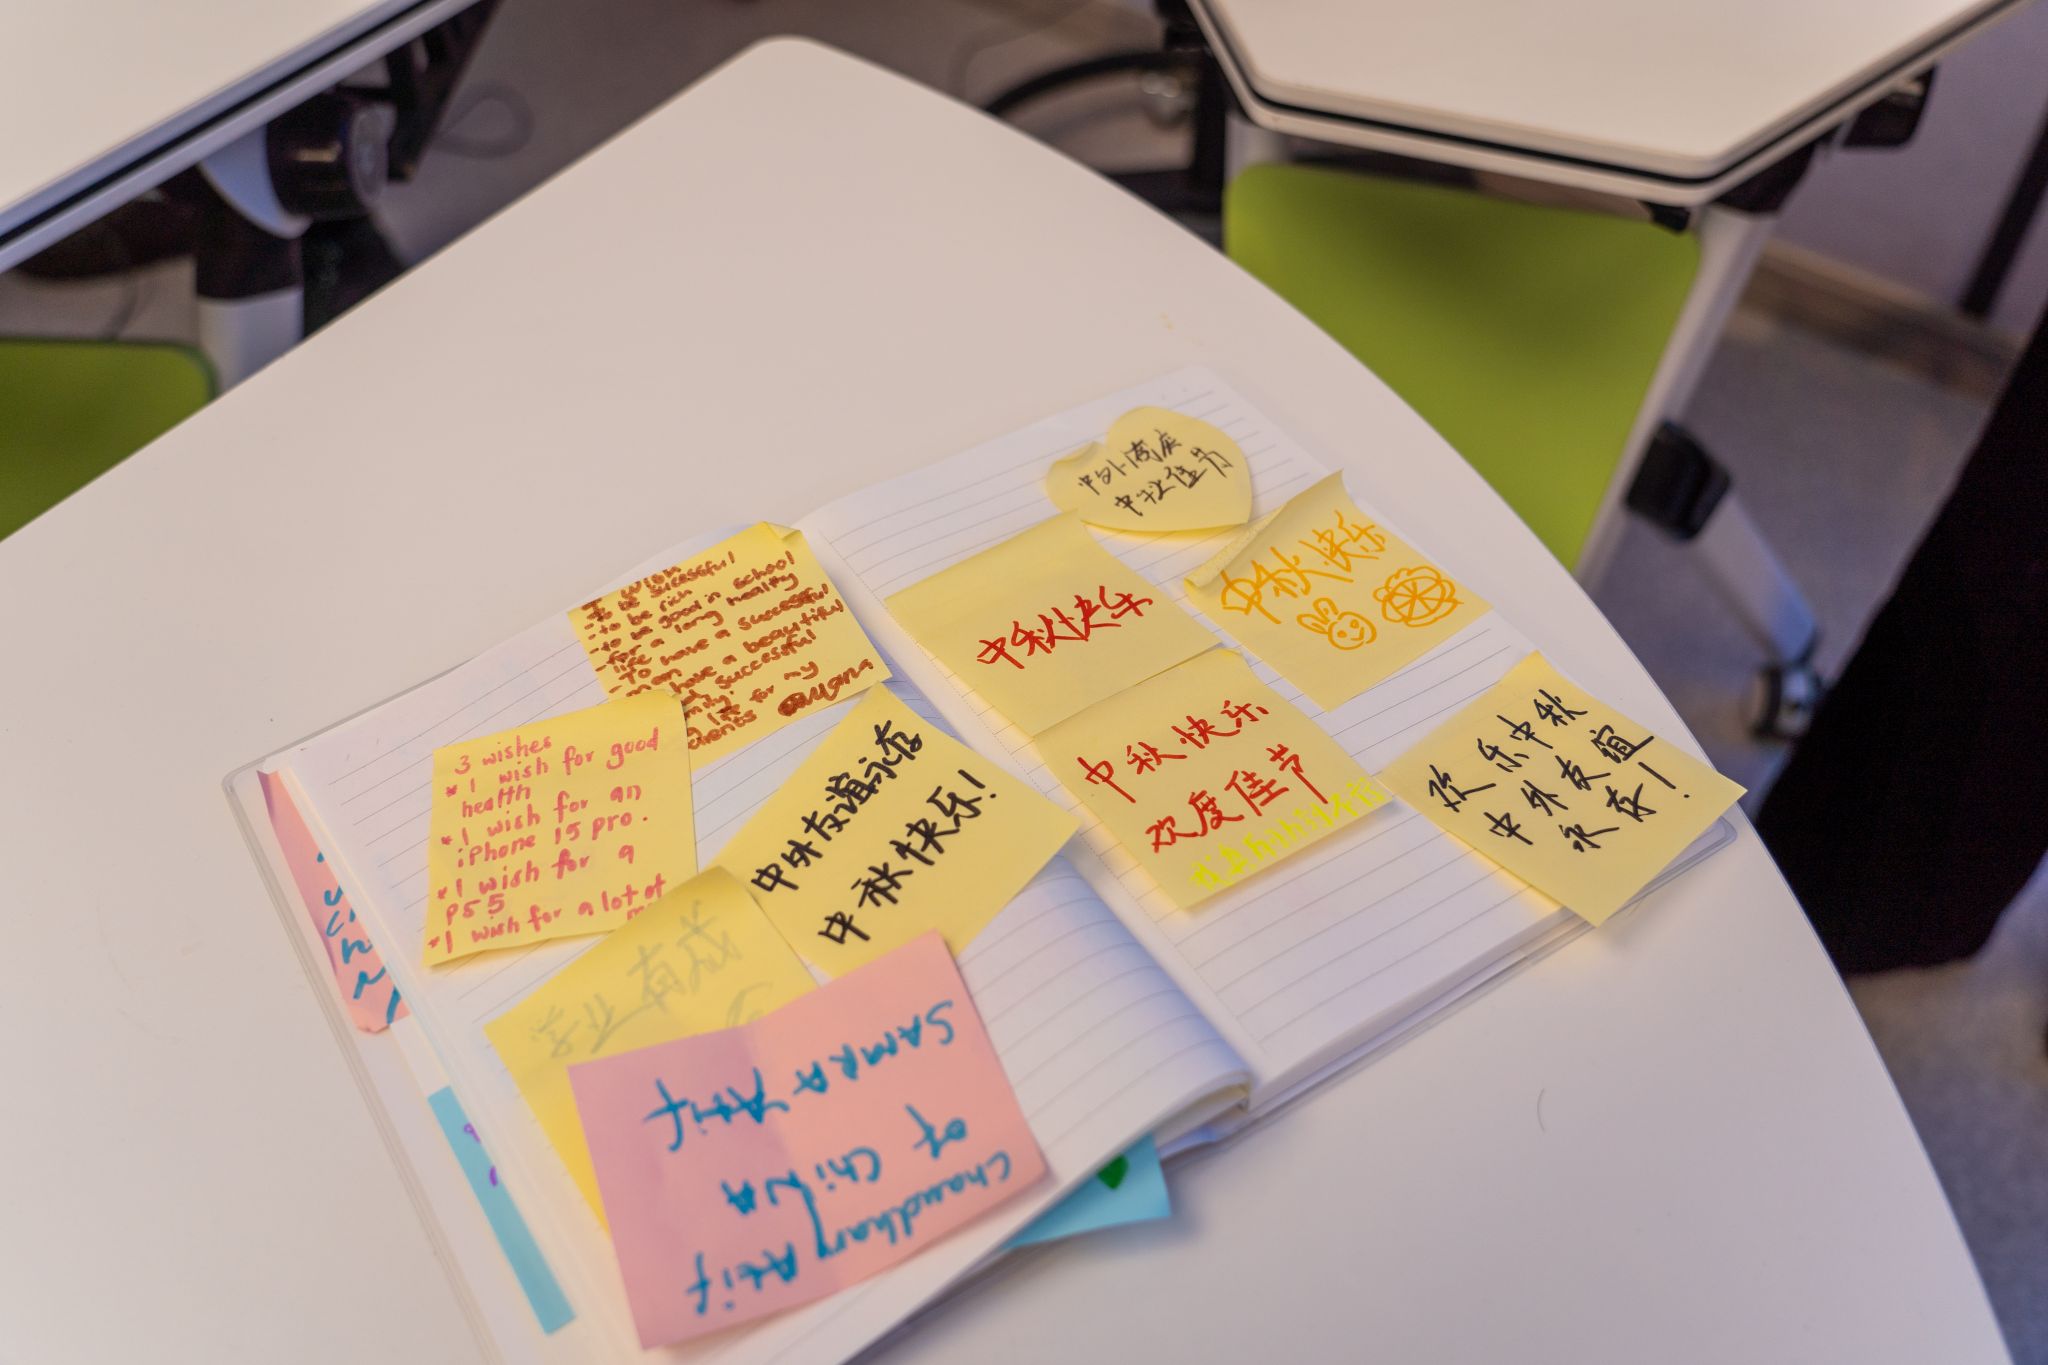 I wish
-To be successful
-to be rich
-to be good in school
-for a long healthy
life
-To have a successful
man
have a beautiful
successful
life for my
3 wishes
*I wish for good
health
*I wish for an
iPhone 15 pro.
*I wish for a
PS5
*I wish for a lot of
中外友谊永存
中秋快乐!
学业有成
SAMRA Atif
of ChiNA
Chaudhary Atif
中外同庆
中秋佳节
中秋快乐
中秋快乐
中秋快乐
欢度佳节
欢乐中秋
中外友谊
永存!